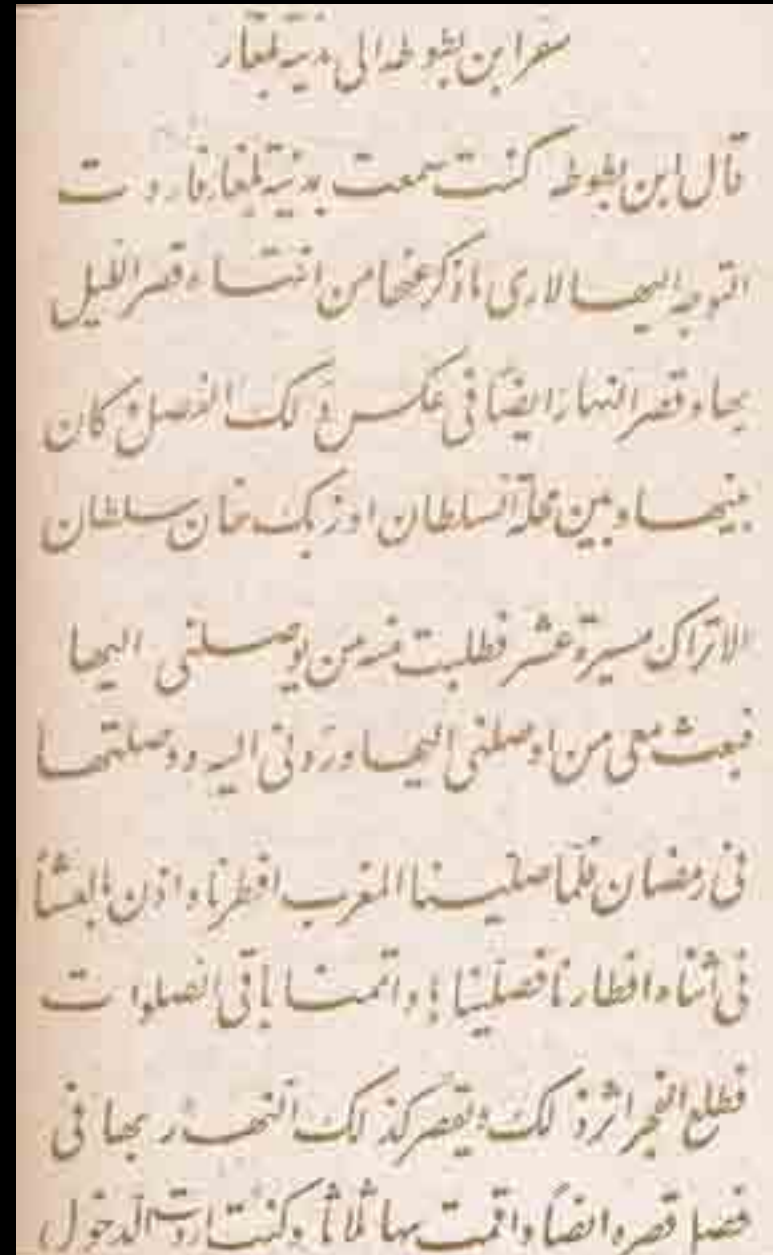 سفر ابن بطوطه الى مدينة بلغار
قال ابن بطوطه كنت سمعت بمدينة بلغار فاردت
التوجه اليها لارى ما ذكر عنها من انتهاء قصر الليل
بها وقصر النهار ايضا فى عكس ذلك الفصل وكان
بينها وبين محلة السلطان اوزبك خان سلطان
الاتراك مسيرة عشر فطلبت منه من يوصلنى اليها
فبعث معى من اوصلنى اليها وردنى اليه ووصلتها
فى رمضان فلما صلينا المغرب افطرنا واذن بالعشا
فى اثناء افطارنا فصليناها واتمنا باقى الصلوات
فطلع الفجر اثر ذلك ويقصر كذلك النهار بها فى
فصل قصره ايضا واقمت بها ثلاثا وكنت اردت الدخول